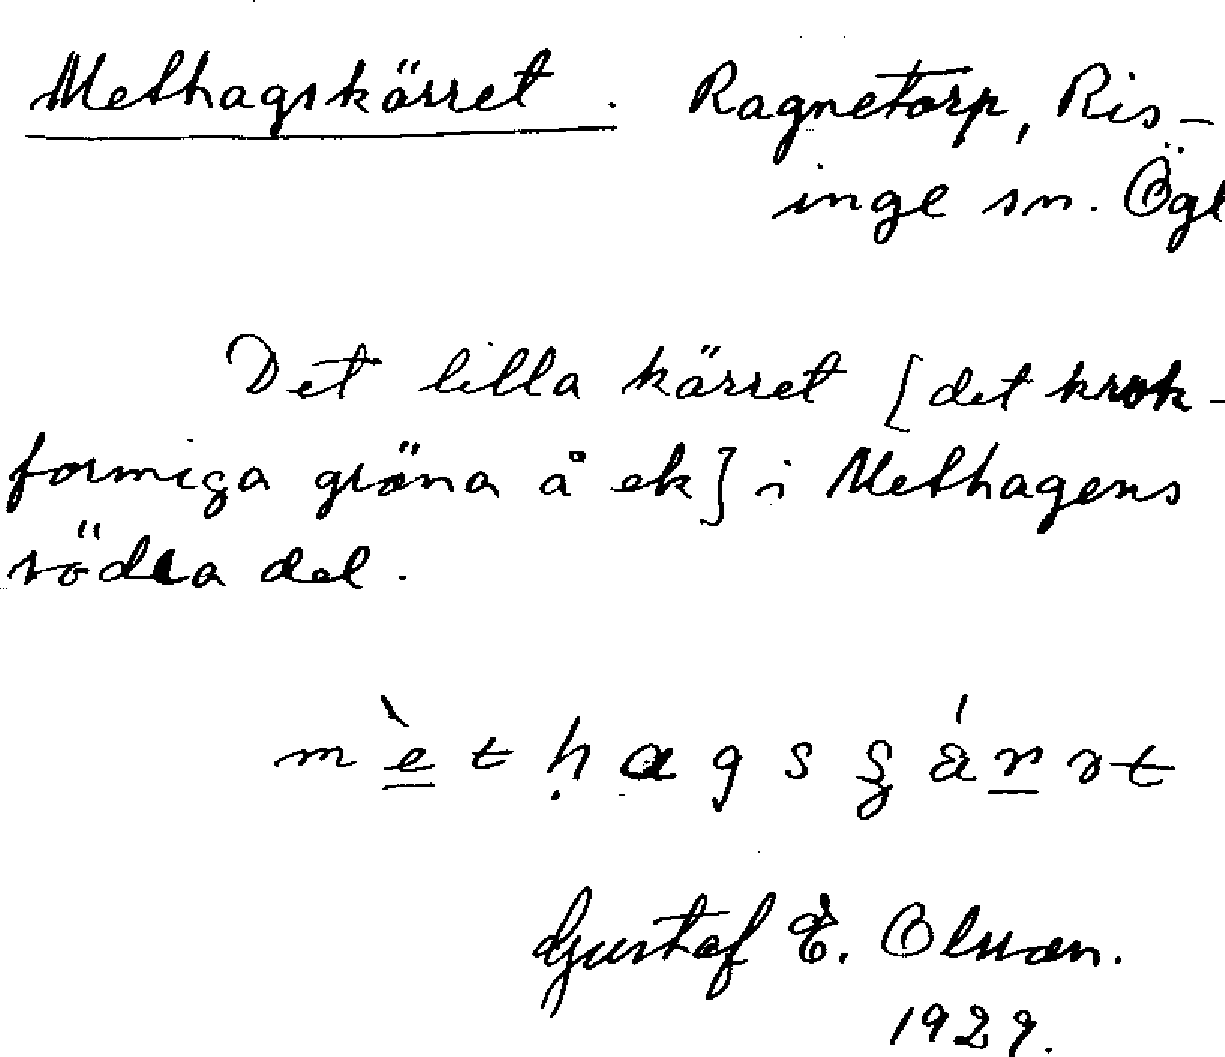 Methagskärret. Ragnetorp, Ris-
inge sn. Ögl
Det lilla kärret [det krok-
formiga gröna å ek] i Methagens
södra del.
Gustaf E. Olsson.
1929.